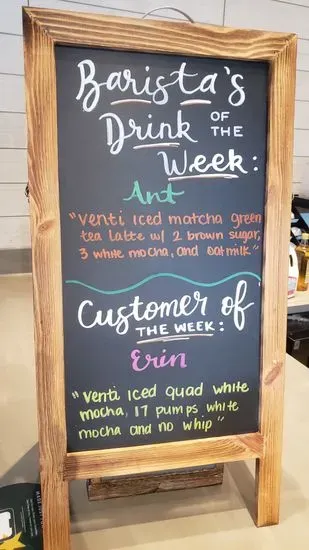 Barista's
Drink OF THE
Week:
Ant
"Venti iced matcha green
tea latte w/ 2 brown sugar,
3 white mocha, and oatmilk"
Customer of
THE WEEK:
Erin
"Venti iced quad white
mocha, 17 pumps white
mocha and no whip"